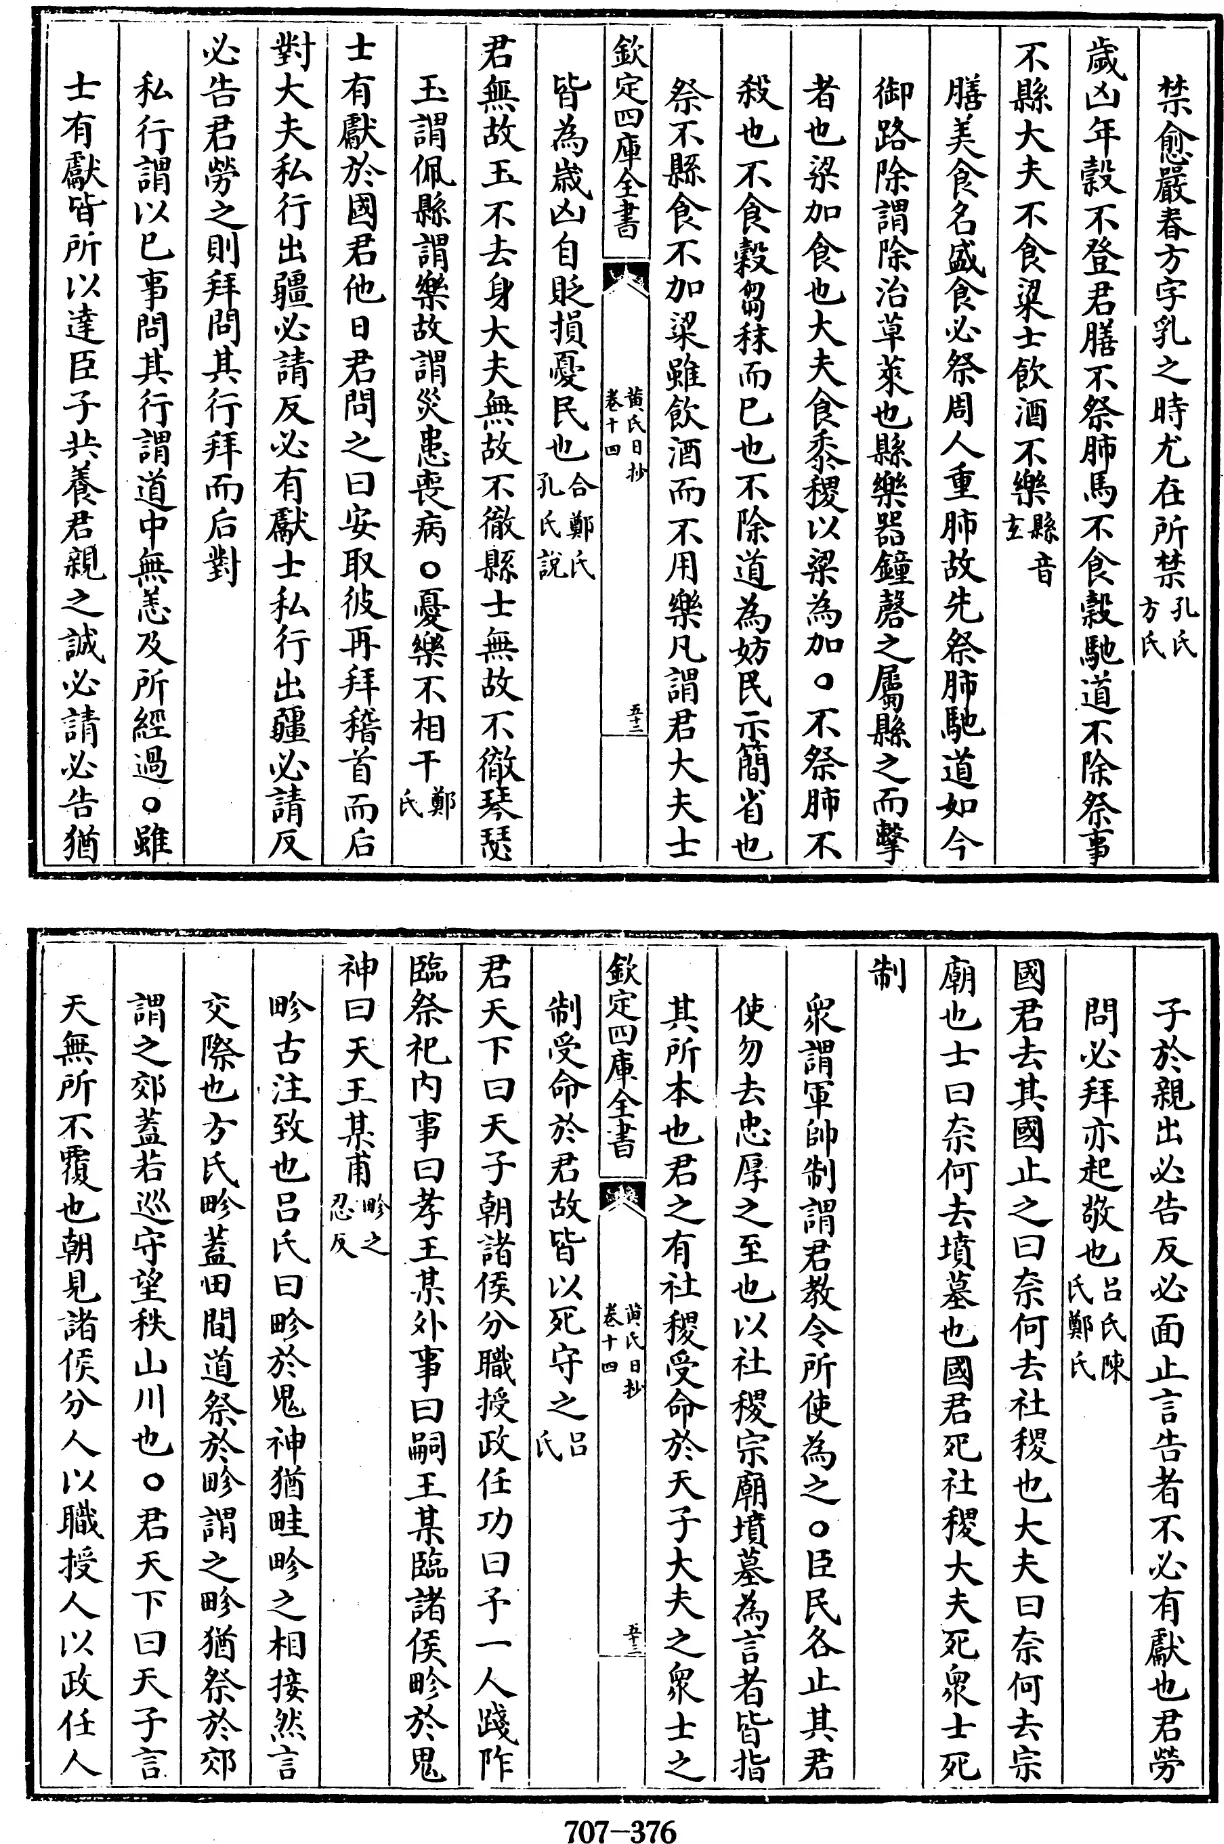 禁愈嚴春方字乳之時尤在所禁孔氏方氏
歲凶年穀不登君膳不祭肺馬不食穀馳道不除祭事
不縣大夫不食粱士飲酒不樂縣音玄
膳美食名盛食必祭周人重肺故先祭肺馳道如今
御路除謂除治草萊也縣樂器鐘磬之屬縣之而擊
者也粱加食也大夫食黍稷以粱為加○不祭肺不
殺也不食穀芻秣而已也不除道為妨民示簡省也
祭不縣食不加粱雖飲酒而不用樂凡謂君大夫士
欽定四庫全書 黃氏日抄卷十四 五十二
皆為歲凶自貶損憂民也合鄭氏孔氏說
君無故玉不去身大夫無故不徹縣士無故不徹琴瑟
玉謂佩縣謂樂故謂災患喪病○憂樂不相干鄭氏
士有獻於國君他日君問之曰安取彼再拜稽首而后
對大夫私行出疆必請反必有獻士私行出疆必請反
必告君勞之則拜問其行拜而后對
私行謂以已事問其行謂道中無恙及所經過○雖
士有獻皆所以達臣子共養君親之誠必請必告猶
子於親出必告反必面止言告者不必有獻也君勞
問必拜亦起敬也呂氏陳氏鄭氏
國君去其國止之曰奈何去社稷也大夫曰奈何去宗
廟也士曰奈何去墳墓也國君死社稷大夫死衆士死
制
衆謂軍帥制謂君教令所使為之○臣民各止其君
使勿去忠厚之至也以社稷宗廟墳墓為言者皆指
其所本也君之有社稷受命於天子大夫之衆士之
欽定四庫全書 黃氏日抄卷十四 五十三
制受命於君故皆以死守之呂氏
君天下曰天子朝諸侯分職授政任功曰予一人踐阼
臨祭祀内事曰孝王某外事曰嗣王某臨諸侯畛於鬼
神曰天王某甫畛之忍反
畛古注致也呂氏曰畛於鬼神猶畦畛之相接然言
交際也方氏畛蓋田間道祭於畛謂之畛猶祭於郊
謂之郊蓋若巡守望秩山川也○君天下曰天子言
天無所不覆也朝見諸侯分人以職授人以政任人
707-376